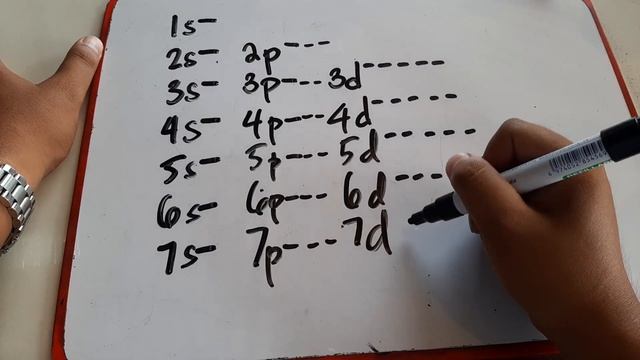 1s-
2s- 2p---
3s- 3p--- 3d-----
4s- 4p--- 4d-----
5s- 5p--- 5d-----
6s- 6p--- 6d---
7s- 7p--- 7d